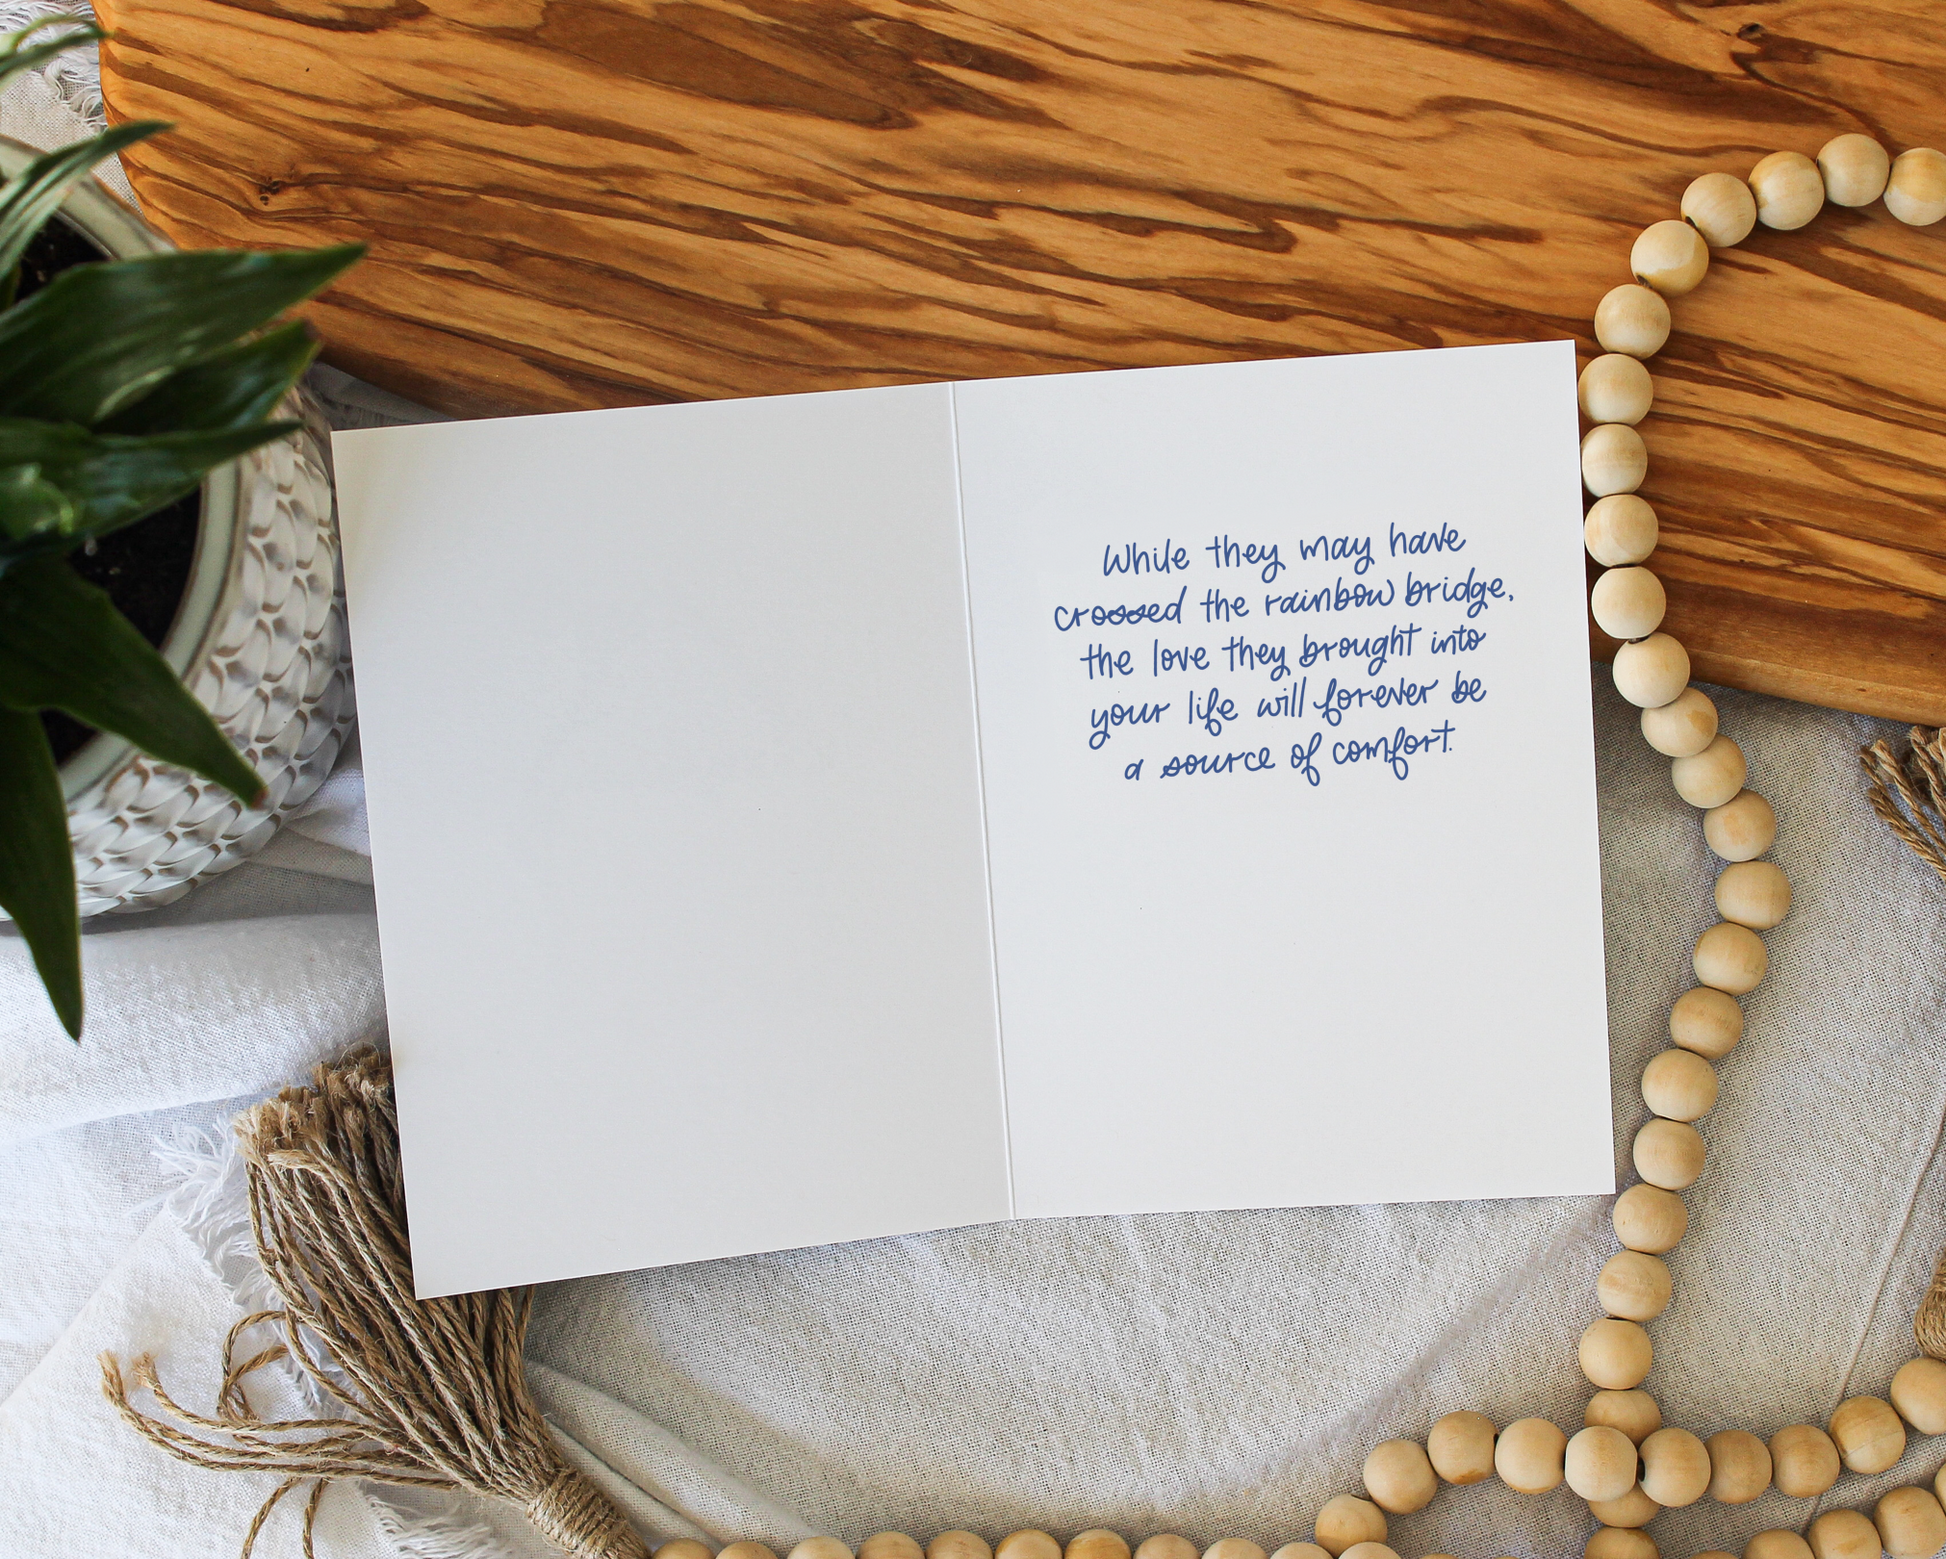 While they may have
crossed the rainbow bridge,
the love they brought into
your life will forever be
a source of comfort.